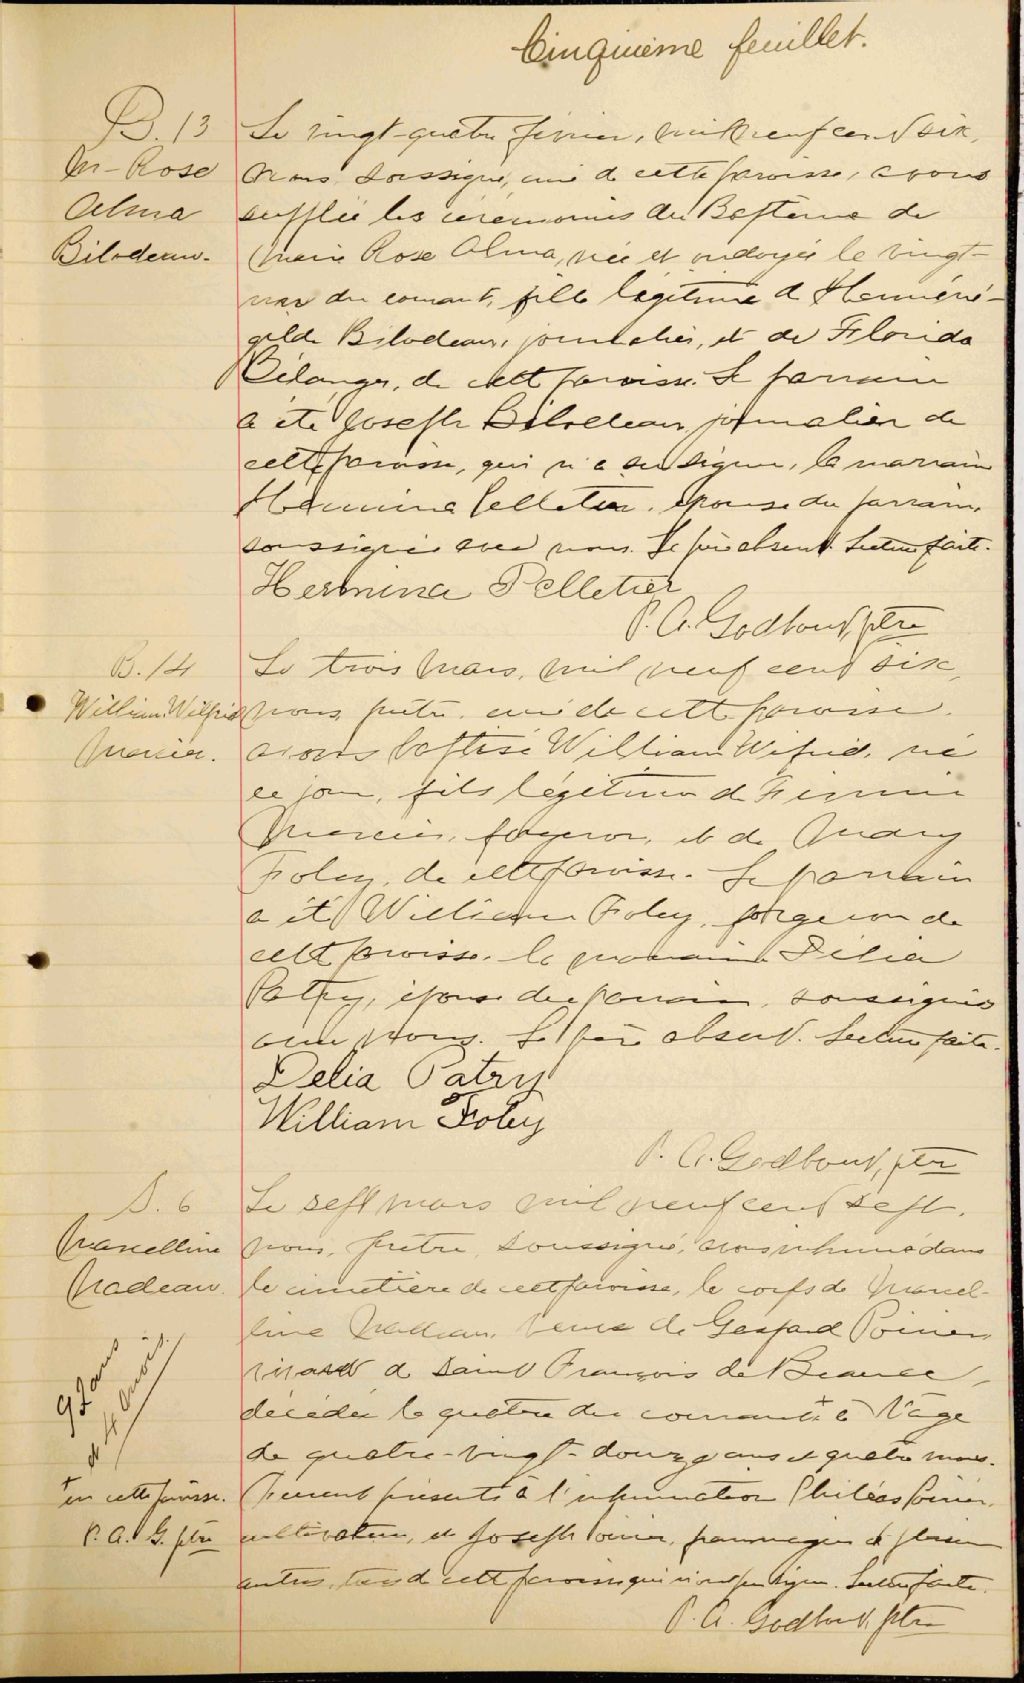 Cinquième feuillet.
B. 13
M-Rose
Alma
Bilodeau.
Le vingt-quatre février, mil neuf cent six,
nous soussigné, curé de cette paroisse, avons
supplée les cérémonies du Baptême de
Marie Rose Alma, née et ondoyée le vingt-
du courant, fille légitime de Herméné-
gilde Bilodeau, journalier, et de Florida
Bélanger, de cette paroisse. Le parrain
a été Joseph Bilodeau, journalier de
cette paroisse, qui n'a su signer, la marraine
Hermina Pelletier, épouse du parrain,
soussignée avec nous. Le père absent. Lecture faite.
Hermina Pelletier
P. A. Godbout, ptre
B. 14
William Wilfrid
Mercier.
Le trois mars, mil neuf cent six,
nous, prêtre, curé de cette paroisse,
avons baptisé William Wifrid, né
ce jour, fils légitime de Firmin
Mercier, forgeron, et de Mary
Foley, de cette paroisse. Le parrain
a été William Foley, forgeron de
cette paroisse, la marraine Délia
Patry, épouse du parrain, soussignés
avec nous. Le père absent. Lecture faite.
Delia Patry
William Foley
P. A. Godbout, ptre
S. 6
Marcelline
Nadeau
92 ans
et 4 mois.
+ en cette paroisse.
P. A. G. ptre
Le sept mars mil neuf cent sept,
nous, prêtre, soussigné, avons inhumé dans
le cimetière de cette paroisse, le corps de Marcel-
line Nadeau, veuve de Gaspard Poirier,
vivant de Saint François de Beauce,
décédée le quatre du courant + à l'âge
de quatre-vingt-douze ans et quatre mois.
Furent présents à l'inhumation Philéas Poirier,
cultivateur, et Joseph Poirier, et plusieurs
autres, tous de cette paroisse qui n'ont pu signer. Lecture faite.
P. A. Godbout, ptre